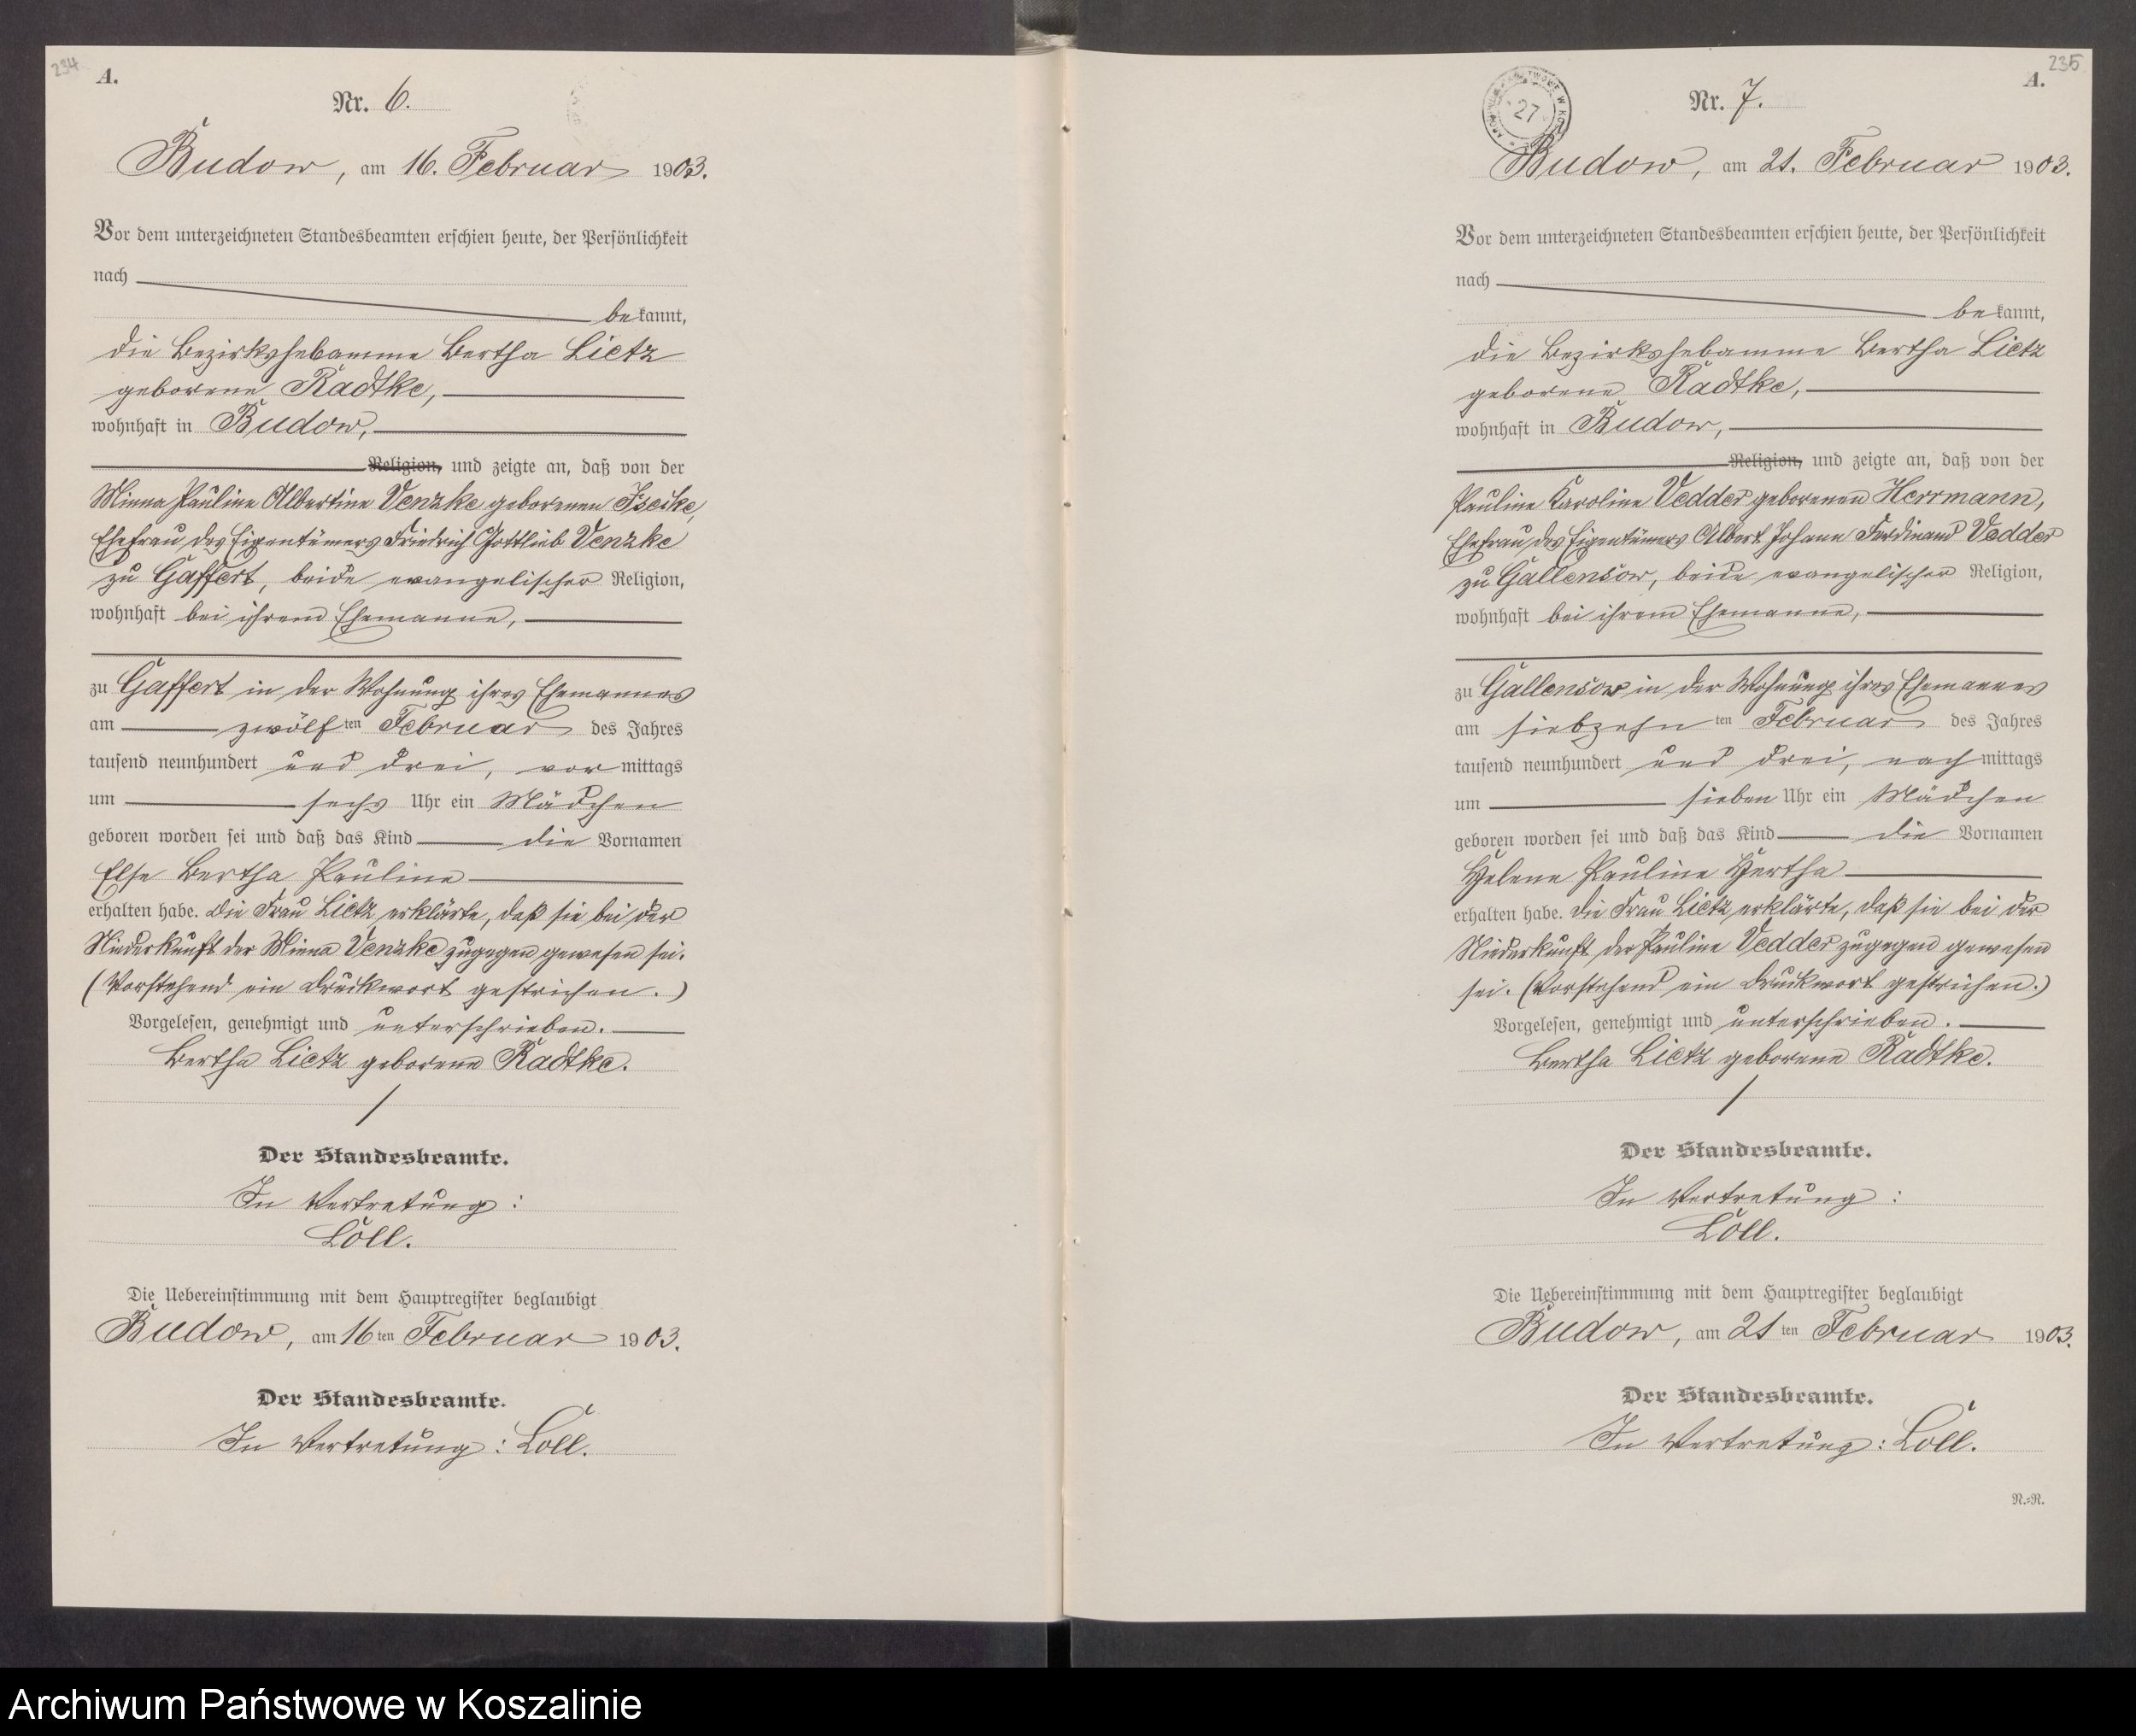 234
A.
Nr. 6.
Budow, am 16. Februar 1903.
Vor dem unterzeichneten Standesbeamten erschien heute, der Persönlichkeit
nach
bekannt,
die Bezirkshebamme Bertha Lietz
geborene Radtke,
wohnhaft in Budow,
Religion, und zeigte an, daß von der
Minna Pauline Albertine Venzke geborenen
Ehefrau des Eigentümers Friedrich Gottlieb Venzke
zu Gaffert, beide evangelischer Religion,
wohnhaft bei ihrem Ehemanne,
zu Gaffert in der Wohnung ihres Ehemannes
am zwölften Februar des Jahres
tausend neunhundert und drei, vormittags
um sechs Uhr ein Mädchen
geboren worden sei und daß das Kind die Vornamen
Else Bertha Pauline
erhalten habe. Die Frau Lietz erklärte, daß sie bei der
Niederkunft der Minna Venzke zugegen gewesen sei.
(Vorstehend ein Druckwort gestrichen.)
Vorgelesen, genehmigt und unterschrieben.
Bertha Lietz geborene Radtke.
Der Standesbeamte.
In Vertretung:
Löll.
Die Uebereinstimmung mit dem Hauptregister beglaubigt
Budow, am 16ten Februar 1903.
Der Standesbeamte.
In Vertretung: Löll.
235
A.
27
Nr. 7.
Budow, am 21. Februar 1903.
Vor dem unterzeichneten Standesbeamten erschien heute, der Persönlichkeit
nach
bekannt,
die Bezirkshebamme Bertha Lietz
geborene Radtke,
wohnhaft in Budow,
Religion, und zeigte an, daß von der
Pauline Karoline Vedder geborenen Herrmann,
Ehefrau des Eigentümers Albert Johann Ferdinand Vedder
zu Gallensow, beide evangelischer Religion,
wohnhaft bei ihrem Ehemanne,
zu Gallensow in der Wohnung ihres Ehemannes
am siebzehnten Februar des Jahres
tausend neunhundert und drei, nachmittags
um sieben Uhr ein Mädchen
geboren worden sei und daß das Kind die Vornamen
Helene Pauline Hertha
erhalten habe. Die Frau Lietz erklärte, daß sie bei der
Niederkunft der Pauline Vedder zugegen gewesen
sei. (Vorstehend ein Druckwort gestrichen.)
Vorgelesen, genehmigt und unterschrieben.
Bertha Lietz geborene Radtke.
Der Standesbeamte.
In Vertretung:
Löll.
Die Uebereinstimmung mit dem Hauptregister beglaubigt
Budow, am 21ten Februar 1903.
Der Standesbeamte.
In Vertretung: Löll.
N.=N.
Archiwum Państwowe w Koszalinie